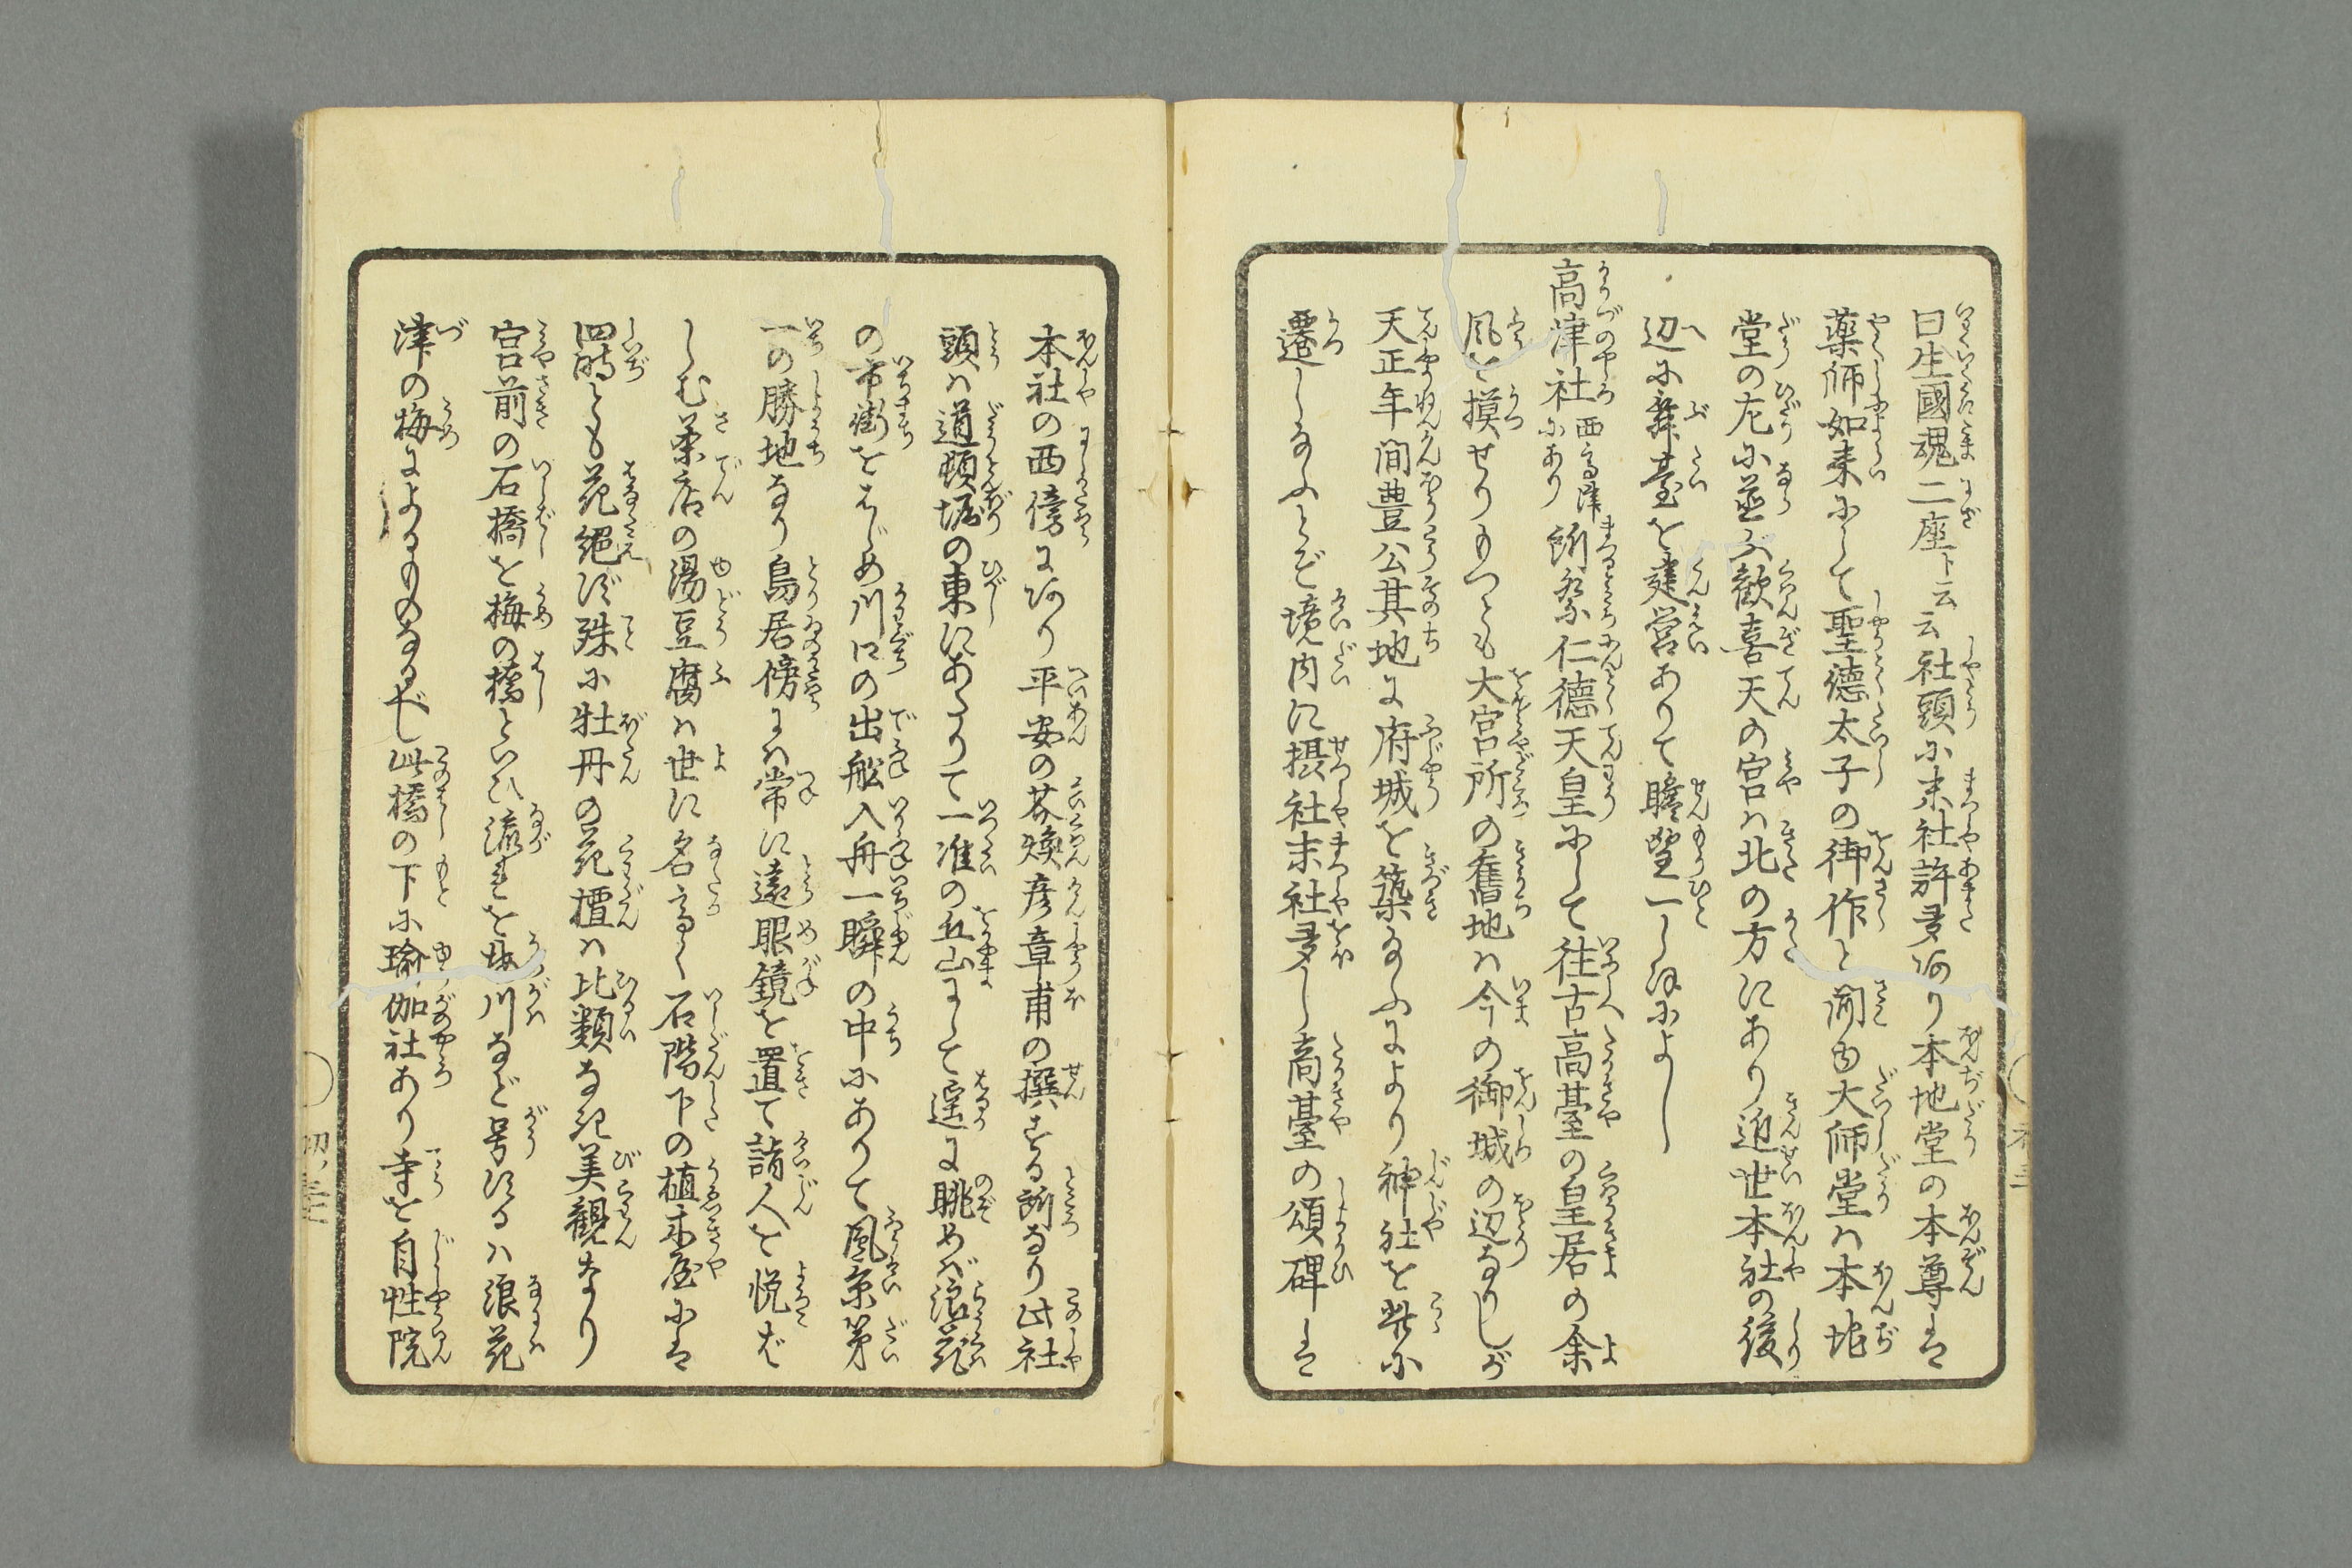 曰生國魂二座ト云云社頭に末社許多あり本地堂の本尊は
薬師如来にして聖德太子の御作と聞ゆ大師堂ハ本地
堂の左に並ぶ歓喜天の宮ハ北の方にあり近世本社の後
辺に舞臺を建営ありて瞻望一しほによし
高津社西高津にあり所祭仁德天皇にして往古高臺の皇居の余
風を摸せりもつとも大宮所の舊地ハ今の御城の辺なりしが
天正年間豊公其地に府城を築給ふにより神社を此に
遷し給ふとぞ境内に摂社末社多し高臺の頌碑は
本社の西傍にあり平安の芥煥彦章甫の撰する所なり此社
頭ハ道頓堀の東にあたりて一准の丘山にして遥に眺めバ浪花
の市街をはじめ川口の出舩入舟一瞬の中にありて風景第
一の勝地なり鳥居傍にハ常に遠眼鏡を置て詣人を悦ば
しむ茶店の湯豆腐ハ世に名高く石階下の植木屋には
四時とも花絕ず殊に牡丹の花壇ハ比類なき美観なり
宮前の石橋を梅の橋といひ流れを梅川など号くるハ浪花
津の梅によるものなるべし此橋の下に瑜伽社あり寺を自性院